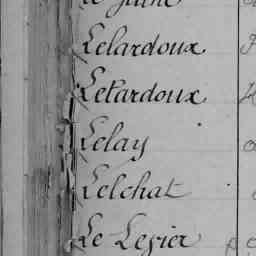 Lelardoux
Letardoux
Lelay
Lelchat
Le Lesier